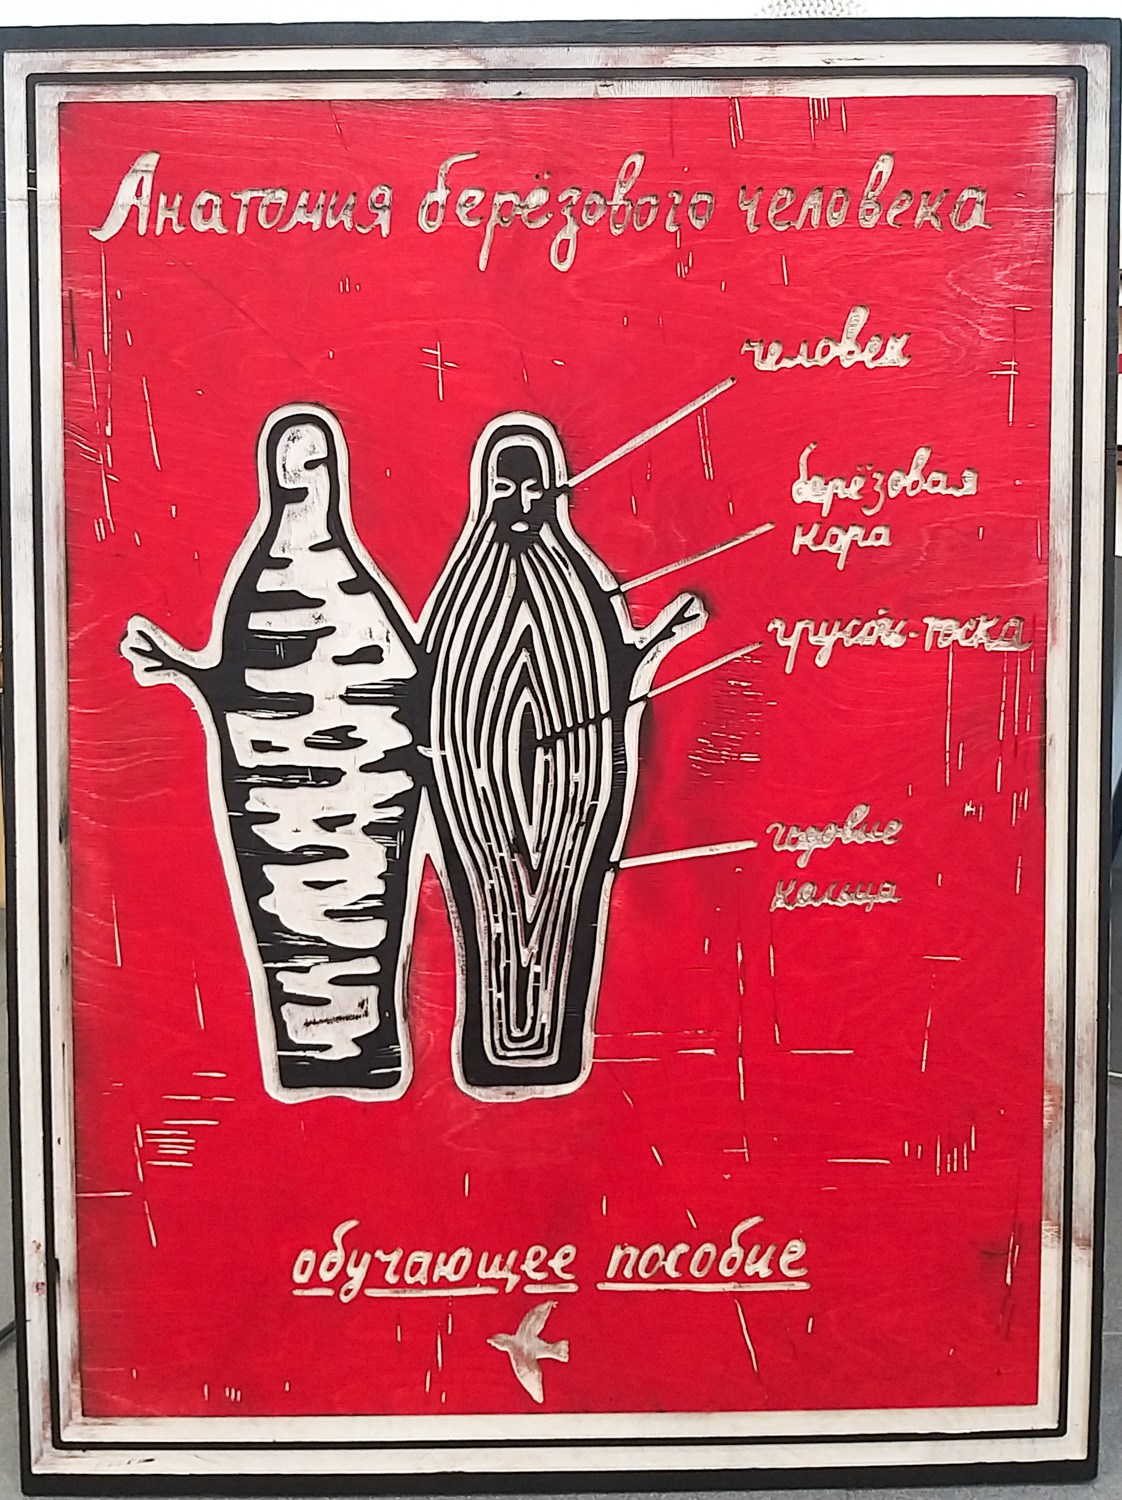 Анатомия берёзового человека
человек
берёзовая
кора
грусть-тоска
годовые
кольца
обучающее пособие